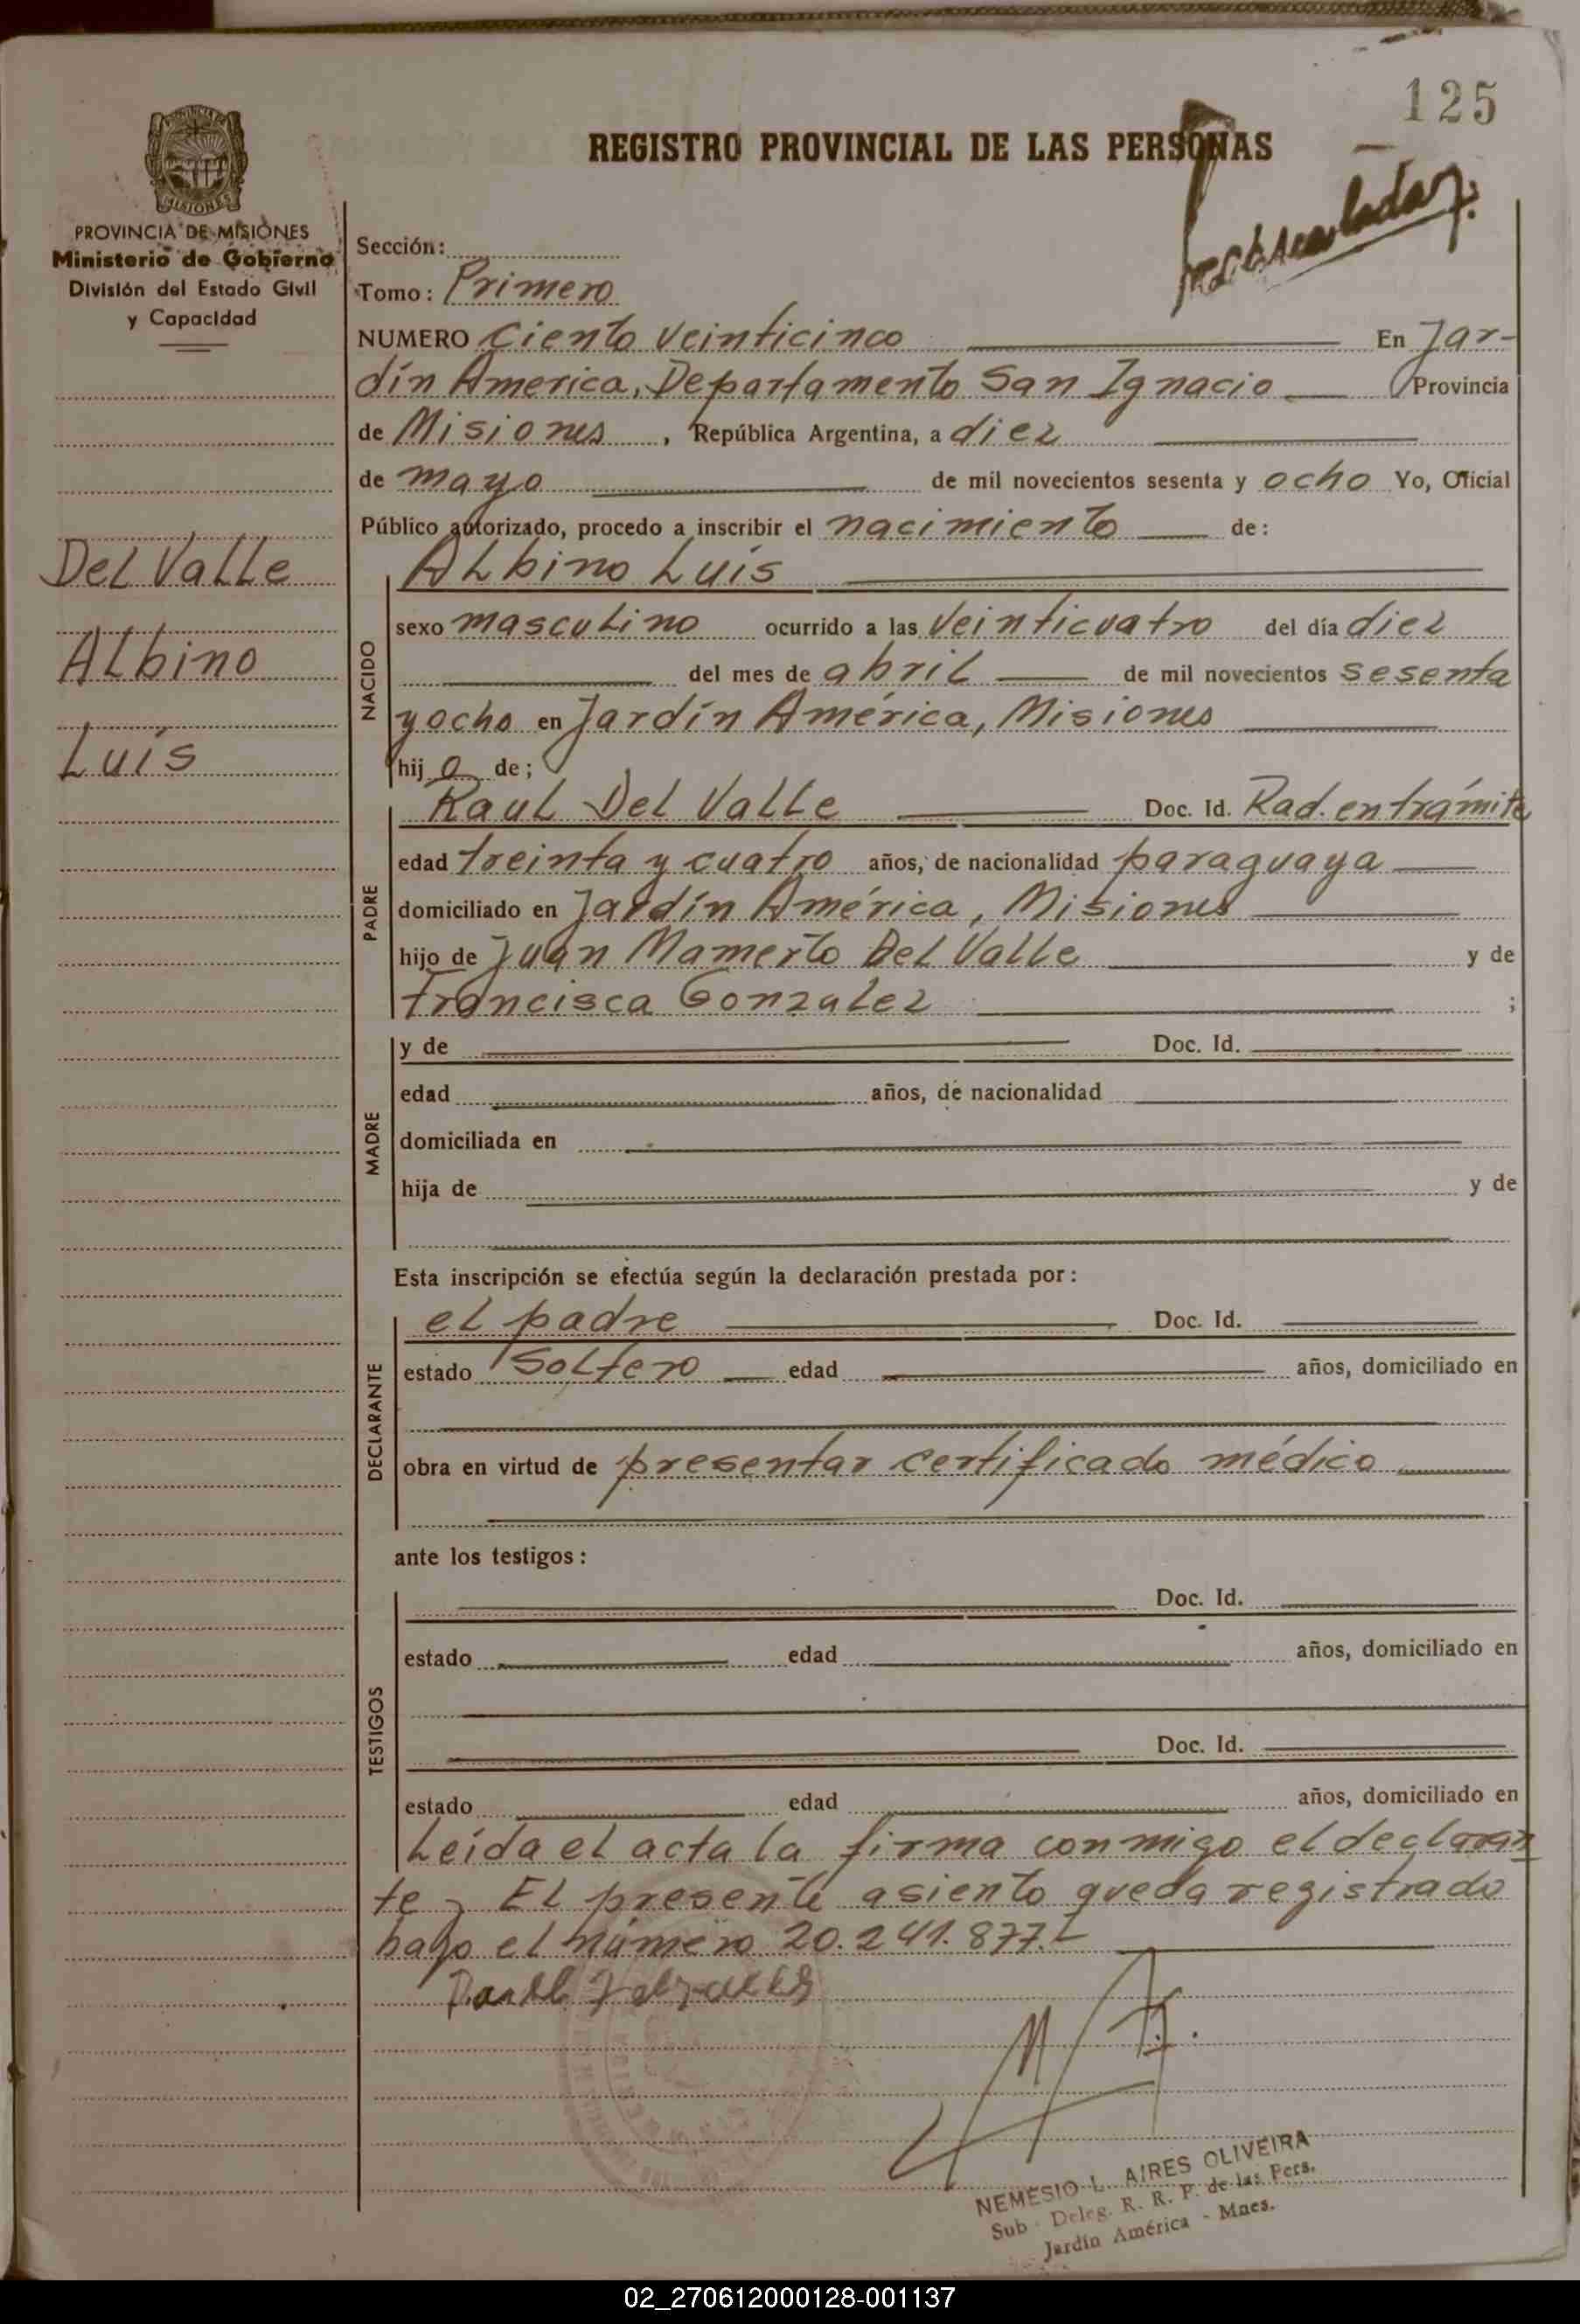 125
REGISTRO PROVINCIAL DE LAS PERSONAS
MISIONES
PROVINCIA DE MISIONES
Ministerio de Gobierno
División del Estado Civil
y Capacidad
Sección:
Tomo: Primero
NUMERO Ciento veinticinco En Jar-
dín America, Departamento San Ignacio Provincia
de Misiones, República Argentina, a diez
de mayo de mil novecientos sesenta y ocho Yo, Oficial
Público autorizado, procedo a inscribir el nacimiento de:
Del Valle
Albino
Luís
NACIDO
Albino Luís
sexo masculino ocurrido a las veinticuatro del día diez
del mes de abril de mil novecientos sesenta
y ocho en Jardín América, Misiones
hijo de;
PADRE
Raul Del Valle Doc. Id. Rad. en trámite
edad treinta y cuatro años, de nacionalidad paraguaya
domiciliado en Jardín América, Misiones
hijo de Juan Mamerto Del Valle y de
Francisca Gonzalez ;
MADRE
y de Doc. Id.
edad años, de nacionalidad
domiciliada en
hija de y de
Esta inscripción se efectúa según la declaración prestada por:
DECLARANTE
el padre Doc. Id.
estado Soltero edad años, domiciliado en
obra en virtud de presentar certificado médico
ante los testigos:
TESTIGOS
Doc. Id.
estado edad años, domiciliado en
Doc. Id.
estado edad años, domiciliado en
Leída el acta la firma conmigo el declaran
te.- El presente asiento queda registrado
bajo el número 20.241.877.-
NEMESIO L. AIRES OLIVEIRA
Sub - Deleg. R. R. P. de las Pers.
Jardín América - Mnes.
02_270612000128-001137